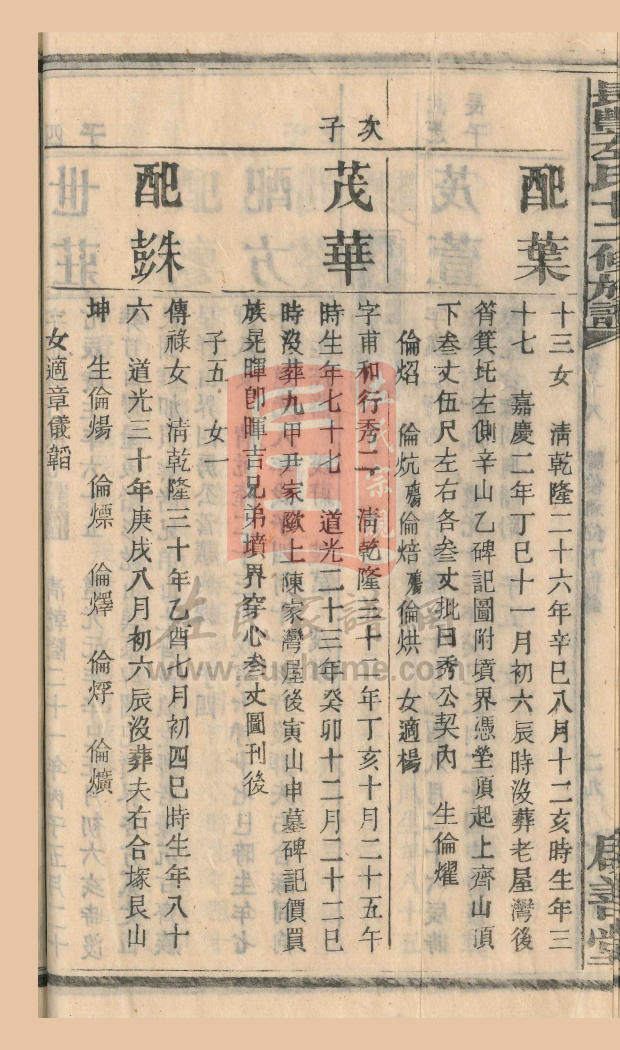 長豐左氏十二修族譜
配葉
十三女 淸乾隆二十六年辛巳八月十二亥時生年三
十七 嘉慶二年丁巳十一月初六辰時沒葬老屋灣後
筲箕圫左側辛山乙碑記圖附墳界憑塋頂起上齊山頂
下叁丈伍尺左右各叁丈批曰秀公契內 生倫燿
倫炤 倫炕殤倫焙殤倫烘 女適楊
次子
茂華
字甫和行秀二 淸乾隆三十二年丁亥十月二十五午
時生年七十七 道光二十三年癸卯十二月二十二巳
時沒葬九甲尹家隞上陳家灣屋後寅山申墓碑記價買
族晃暉卽暉吉兄弟墳界穿心叁丈圖刊後
子五 女一
配彭姝
傳祿女 淸乾隆三十年乙酉七月初四巳時生年八十
六 道光三十年庚戌八月初六辰沒葬夫右合塚艮山
坤 生倫煬 倫熛 倫燡 倫烰 倫爌
女適章儀韜
左氏家譜網
www.zuohome.com